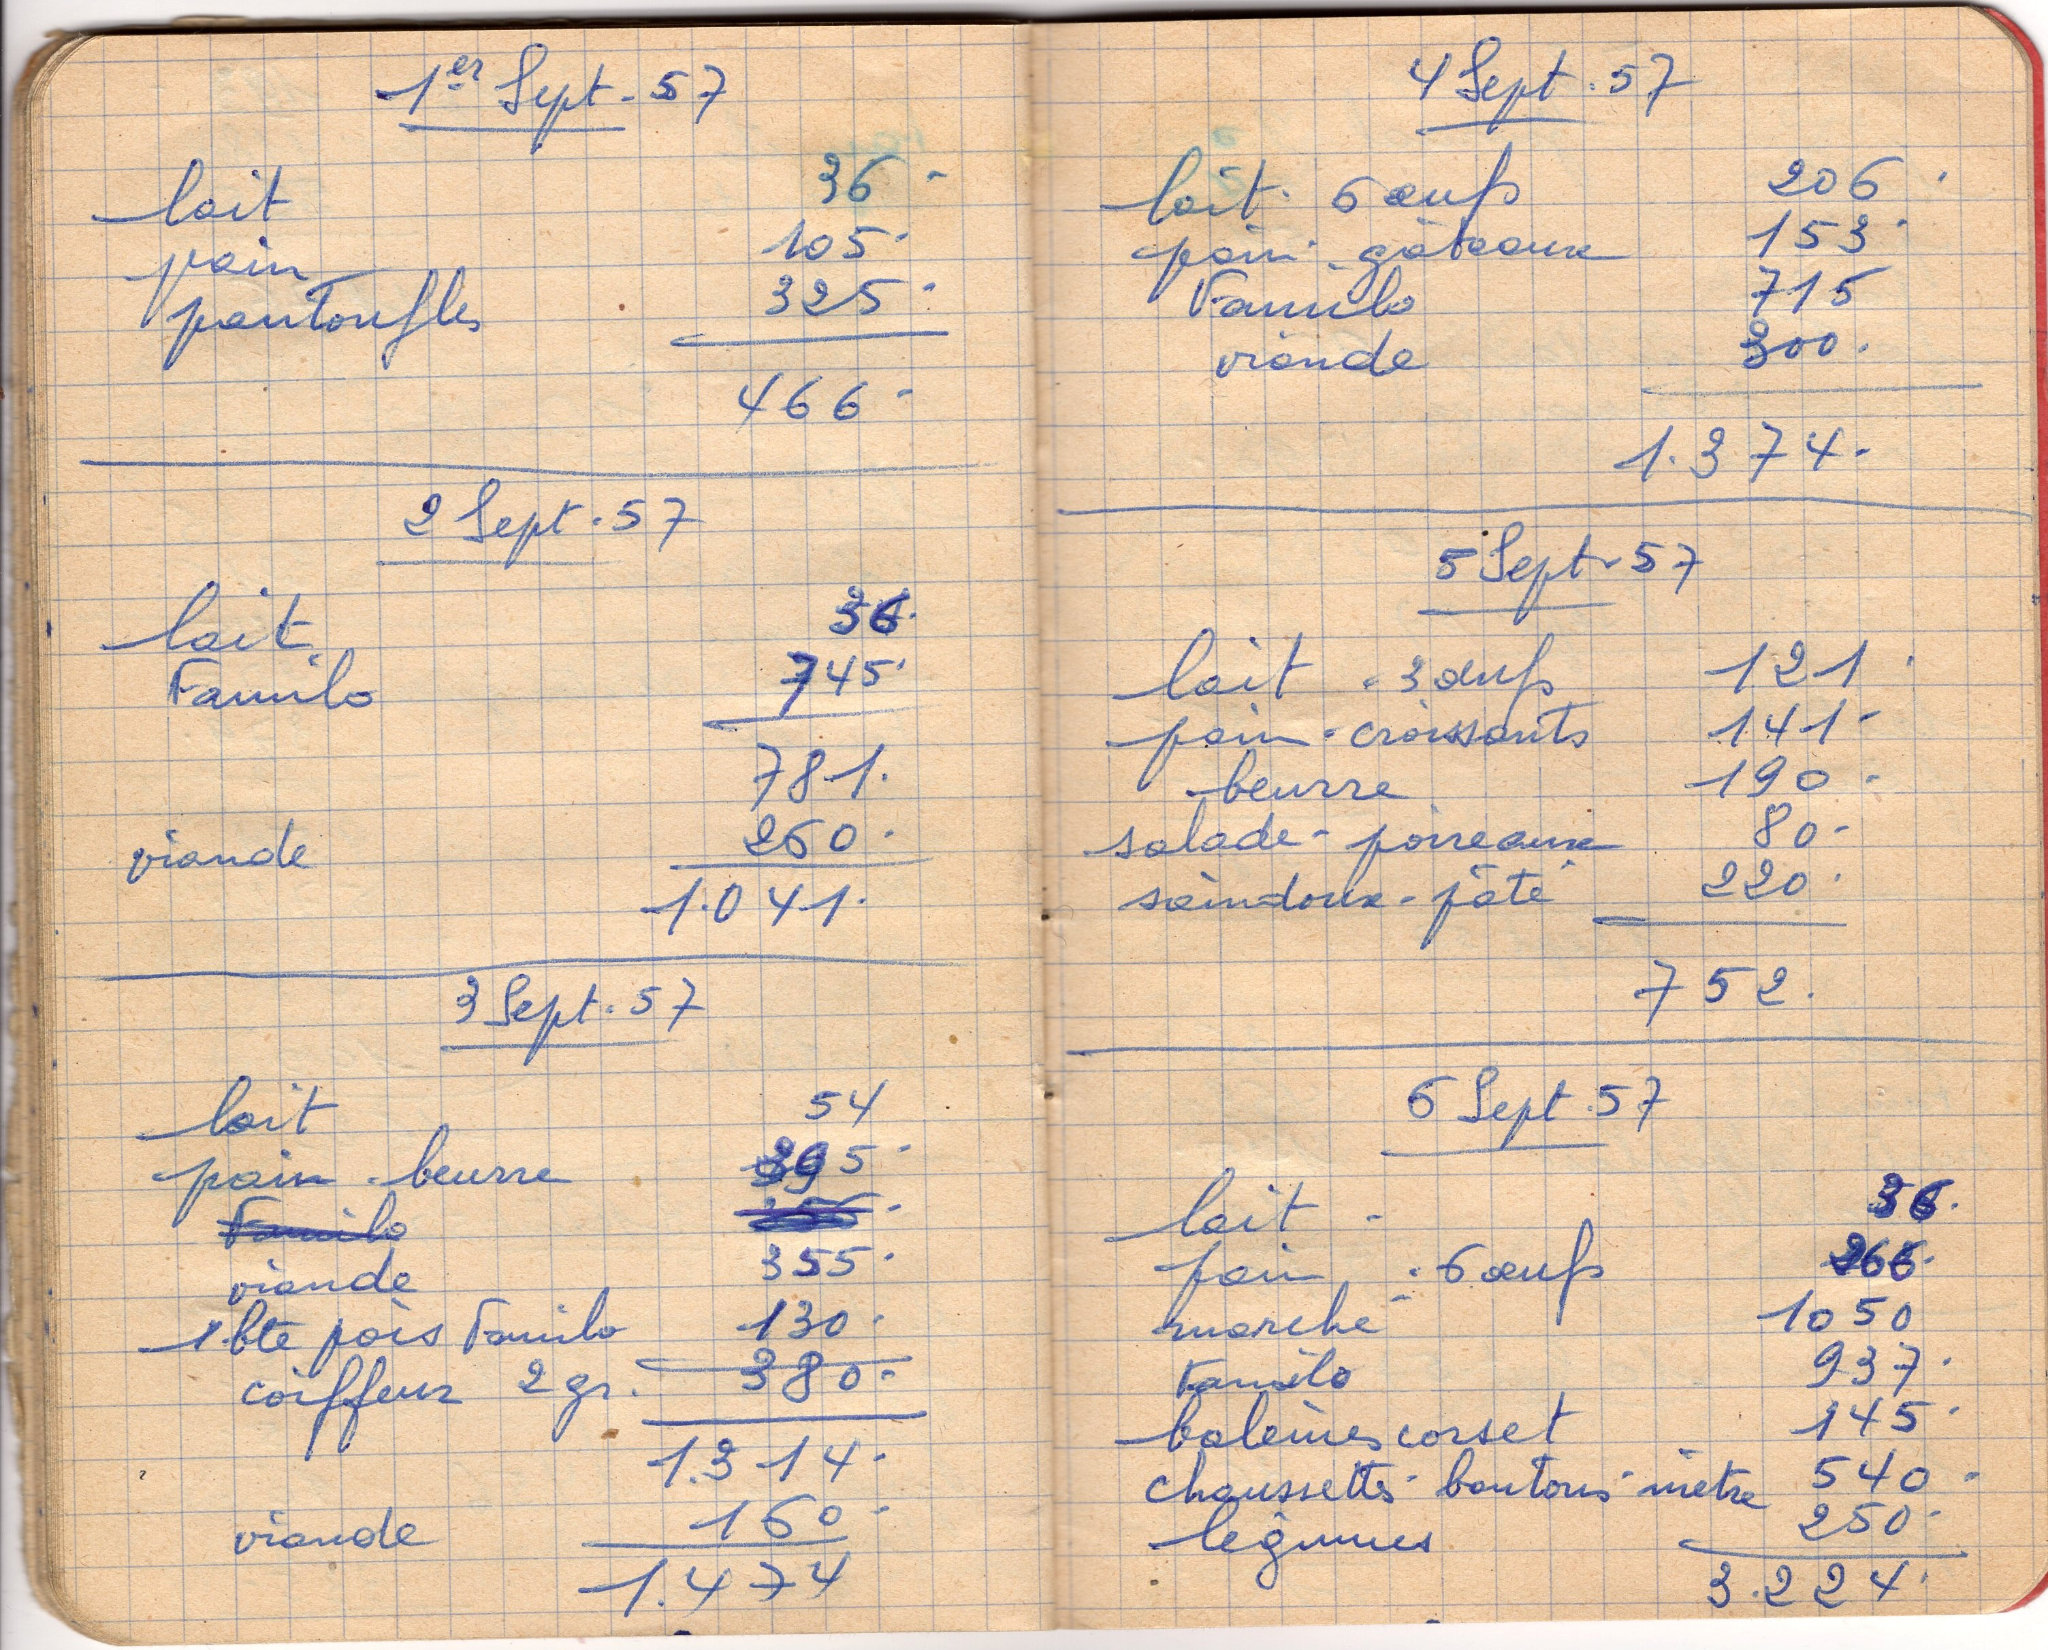 1er Sept. 57
lait 36.
pain 105.
pantoufles 325.
466.
2 Sept. 57
lait 36.
Familo 745.
781.
viande 260.
1.041.
3 Sept. 57
lait 54
pain - beurre 395.
Familo
viande 355.
1 bte pois Familo 130.
coiffeur 2 gr. 380.
1.314.
viande 160.
1.474
4 Sept. 57
lait. 6 œufs 206.
pain - gâteaux 153.
Familo 715
viande 300.
1.374.
5 Sept. 57
lait - 3 œufs 121.
pain - croissants 141.
beurre 190.
salade - poireaux 80.
saindoux - pâté 220.
752.
6 Sept. 57
lait - 36.
pain - 6 œufs 266.
marché 1050
Familo 937.
baleines corset 145.
chaussettes - boutons - mètre 540.
légumes 250.
3.224.